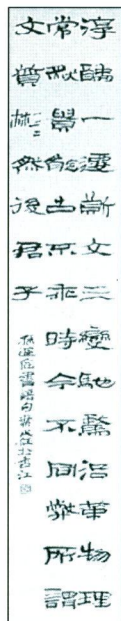 淳醨一遷質文三變馳騖沿革物理
常然貴能古不乖時今不同弊所謂
文質彬〻然後君子
孫過庭書譜句